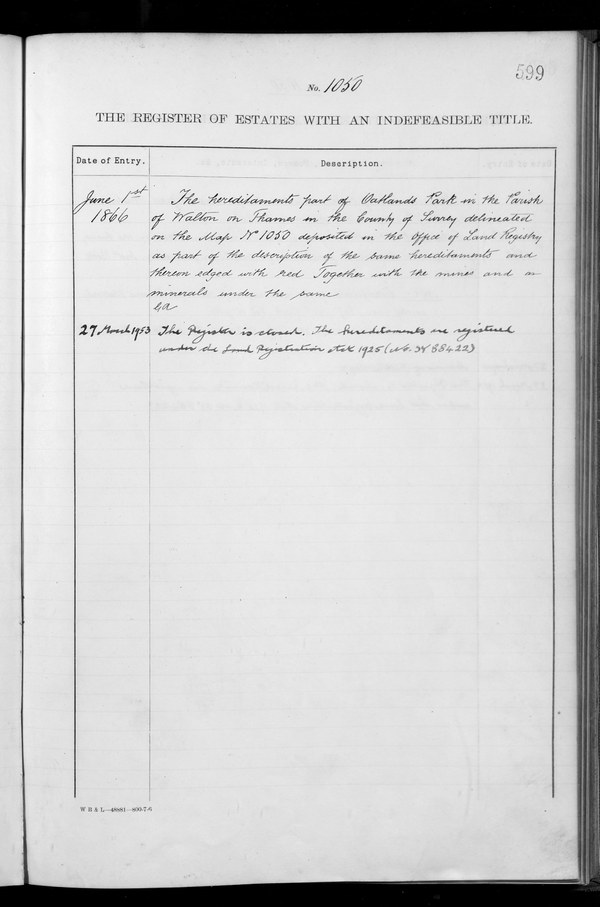 599
No. 1050
THE REGISTER OF ESTATES WITH AN INDEFEASIBLE TITLE.
Date of Entry.
Description.
June 1st
1866
The hereditaments part of Oatlands Park in the Parish
of Walton on Thames in the County of Surrey delineated
on the Map No 1050 deposited in the Office of Land Registry
as part of the description of the same hereditaments and
thereon edged with red Together with the mines and
minerals under the same
27 March 1953
The Register is closed. The hereditaments are registered
under the Land Registration Act 1925
W B & L—48881—400-7-6